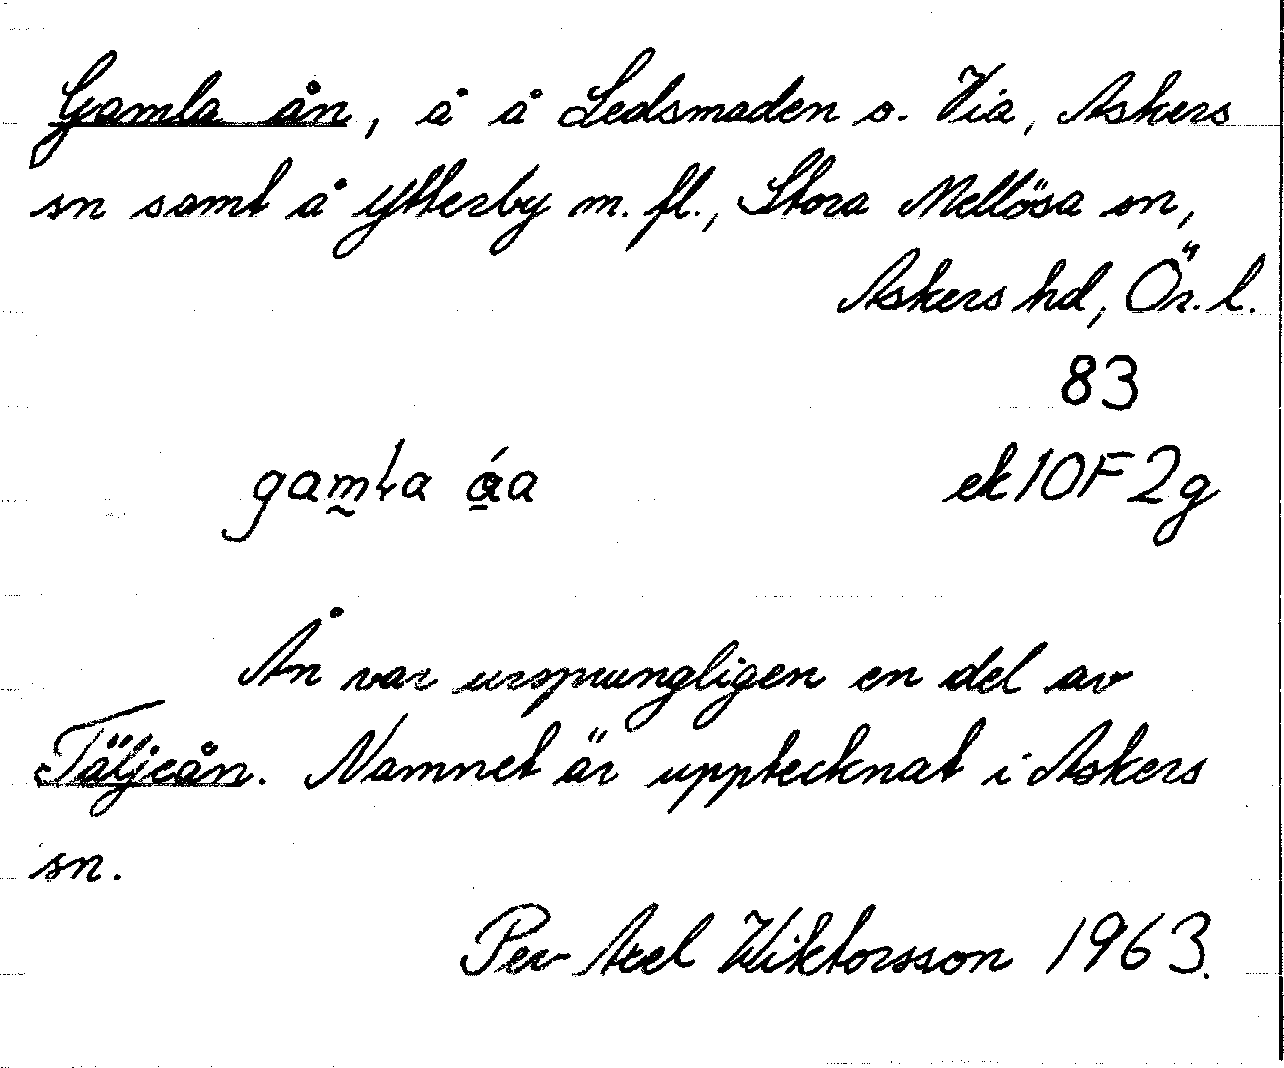 Gamla ån, å å Ledsmaden o. Via, Askers
sn samt å Ytterby m. fl., Stora Mellösa sn,
Askers hd, Ör. l.
83
gamla åa ek 10F 2g
Ån var ursprungligen en del av
Täljeån. Namnet är upptecknat i Askers
sn.
Per Axel Wiktorsson 1963.